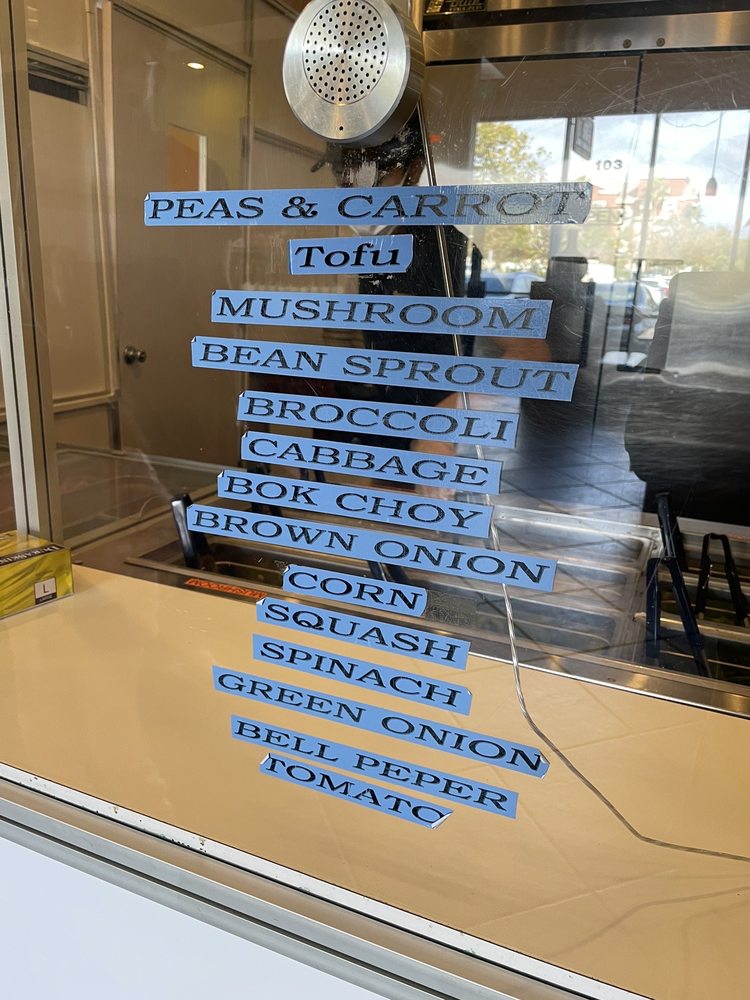 103
PEAS & CARROT
Tofu
MUSHROOM
BEAN SPROUT
BROCCOLI
CABBAGE
BOK CHOY
BROWN ONION
CORN
SQUASH
SPINACH
GREEN ONION
BELL PEPER
TOMATO
L